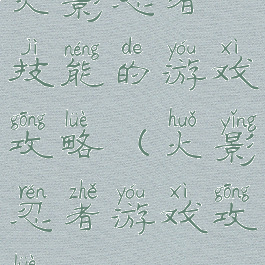 火影忍者
jì néng de yóu xì
技能的游戏
gōng luè huǒ yǐng
攻略（火影
rěn zhě yóu xì gōng
忍者游戏攻
luè